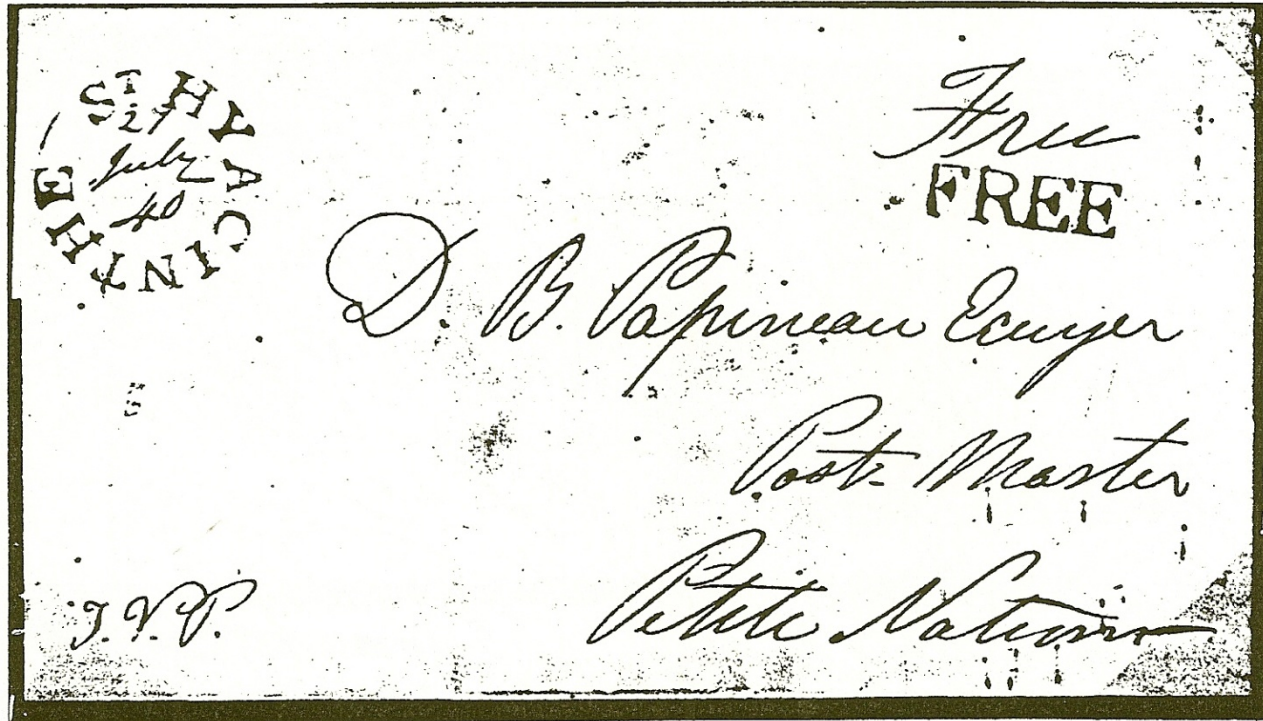 ST HYACINTHE
27
July
40
Free
FREE
D. B. Papineau Ecuyer
Post-Master
Petite Nation